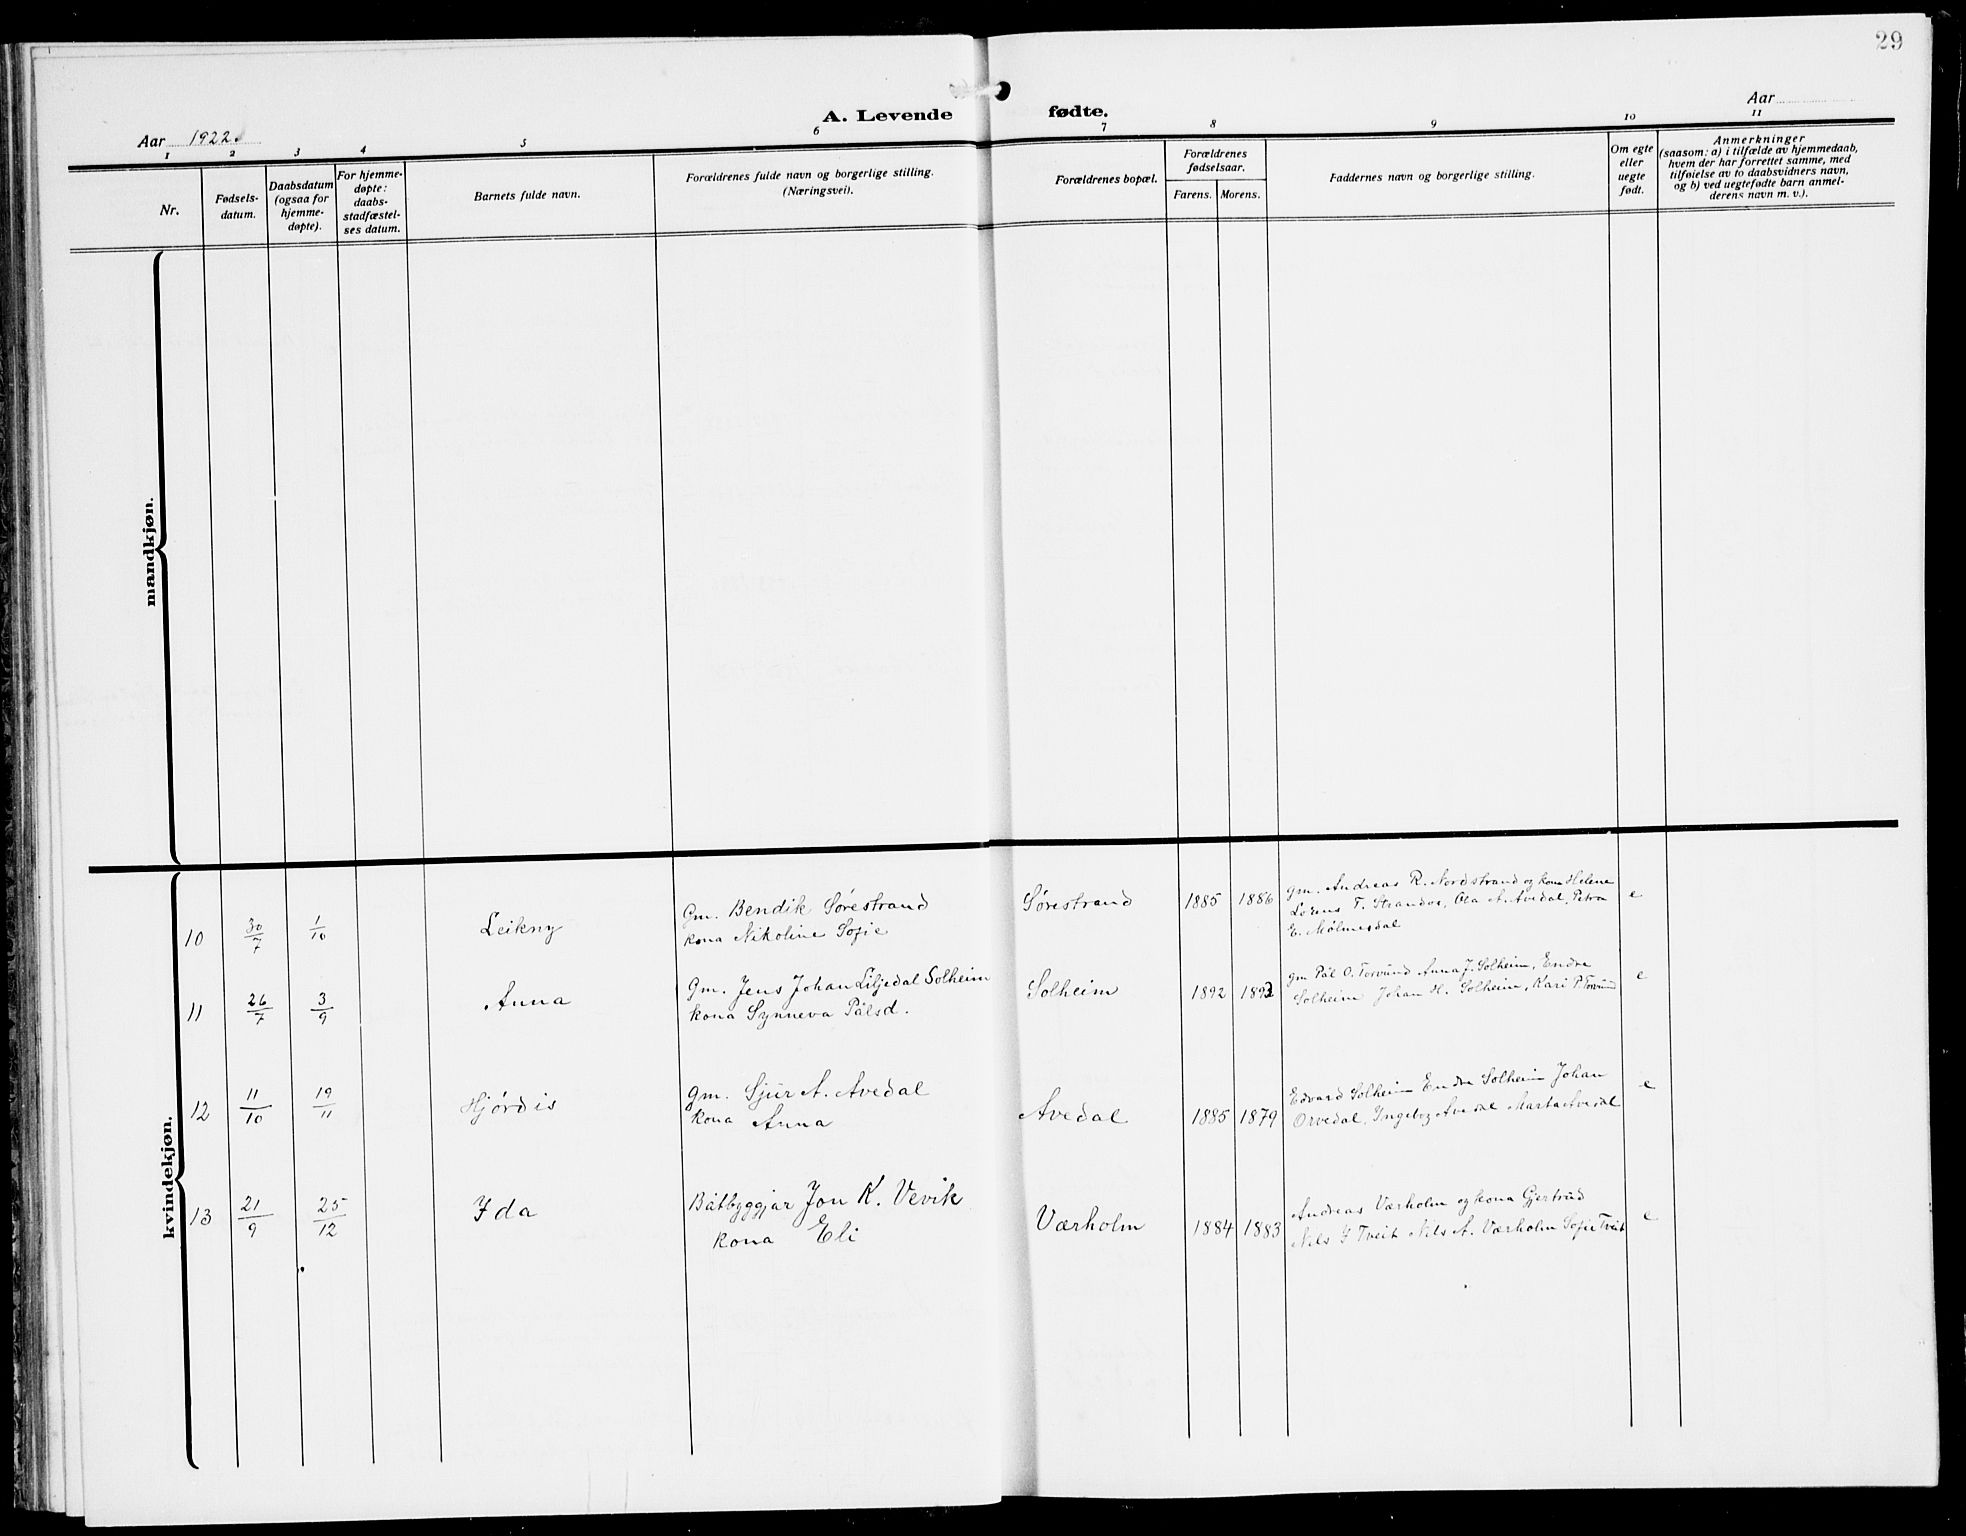 29
A. Levende fødte.
Aar 1922.
Aar
1 2 3 4 5 6 7 8 9 10 11
Nr.
Fødsels-
datum.
Daabsdatum
(ogsaa for
hjemme-
døpte).
For hjemme-
døpte:
daabs-
stadfæstel-
ses datum.
Barnets fulde navn.
Forældrenes fulde navn og borgerlige stilling.
(Næringsvei).
Forældrenes bopæl.
Forældrenes
fødselsaar.
Farens. Morens.
Faddernes navn og borgerlige stilling.
Om egte
eller
uegte
født.
Anmerkninger
(saasom: a) i tilfælde av hjemmedaab,
hvem der har forrettet samme, med
tilføielse av to daabsvidners navn,
og b) ved uegtefødte barn anmel-
derens navn m. v.).
mandkjøn.
kvindekjøn.
10 30/7 1/10 Leikny
Gm. Bendik Sørestrand
kona Nikoline Sofie
Sørestrand 1885 1886
gm. Andreas R. Nordstrand og kona Helene
Lorens T. Strandos, Ola A. Avedal, Petra
E. Mølmesdal
e
11 26/7 3/9 Anna
Gm. Jens Johan Liljedal Solheim
kona Synneva Pålsd.
Solheim 1892
gm Pål O. Torvund Anna J. Solheim, Endre
Solheim Johan H. Solheim, Kari P. Torvund
e
12 11/10 19/11 Hjørdis
gm. Sjur A. Avedal
kona Anna
Avedal 1885 1879
Edvard Solheim Endre Solheim Johan
Orvedal, Ingeborg Avedal Marta Avedal
e
13 21/9 25/12 Ida
Båtbyggjar Jon K. Vevik
kona Eli
Værholm 1884 1883
Andreas Værholm og kona Gjertrud
Nils J Tveit Nils A. Værholm Sofie Tveit
e